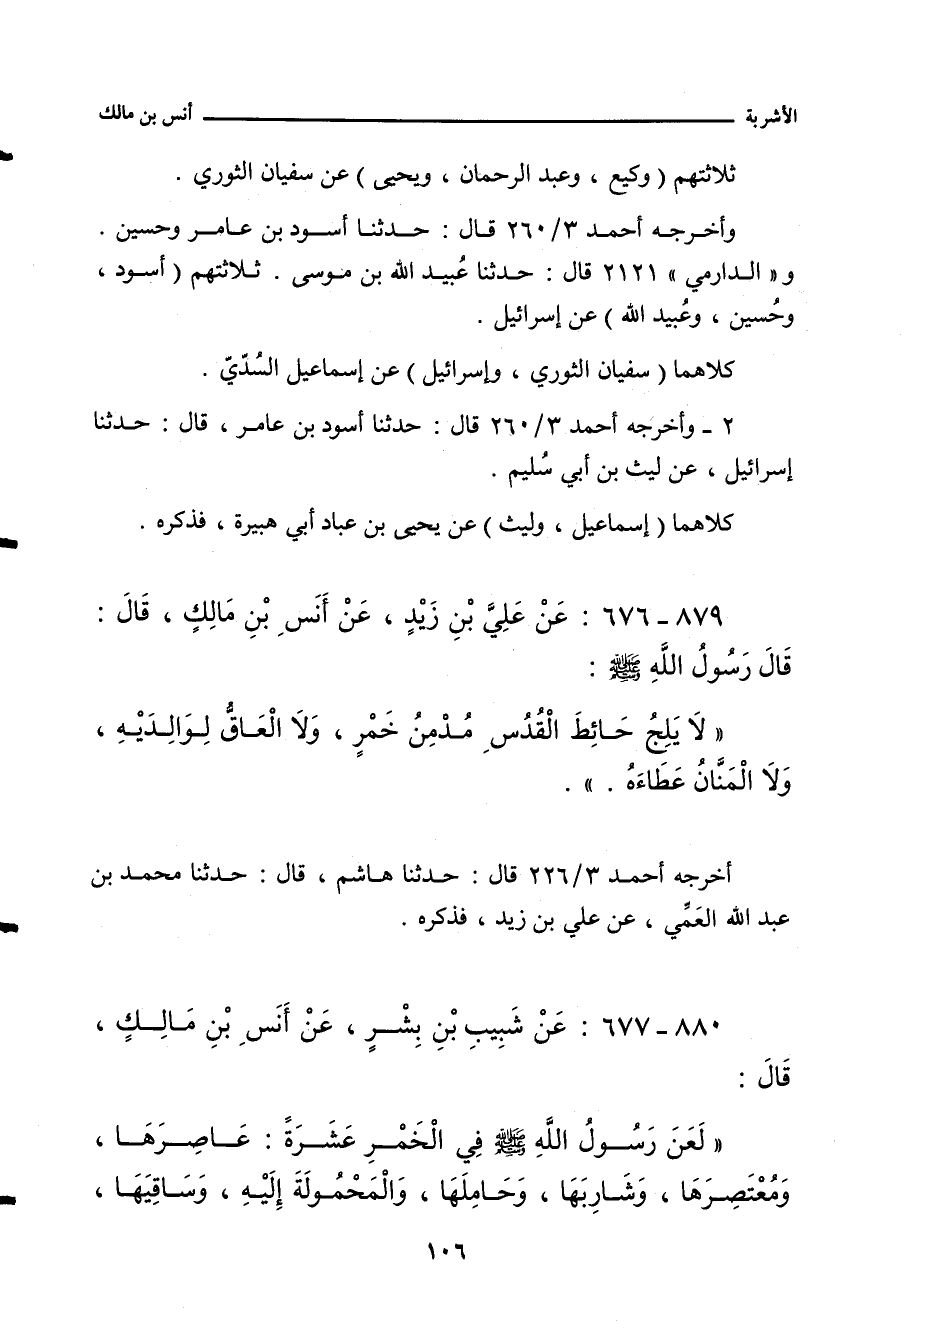 الأشربة ــــــــــ أنس بن مالك
ثلاثتهم ( وكيع ، وعبد الرحمان ، ويحيى ) عن سفيان الثوري .
وأخرجه أحمد ٢٦٠/٣ قال : حدثنا أسود بن عامر وحسين .
و « الدارمي » ٢١٢١ قال : حدثنا عُبيد الله بن موسى . ثلاثتهم ( أسود ،
وحُسين ، وعُبيد الله ) عن إسرائيل .
كلاهما ( سفيان الثوري ، وإسرائيل ) عن إسماعيل السُدّيّ .
٢ ـ وأخرجه أحمد ٢٦٠/٣ قال : حدثنا أسود بن عامر ، قال : حدثنا
إسرائيل ، عن ليث بن أبي سُليم .
كلاهما ( إسماعيل ، وليث ) عن يحيى بن عباد أبي هبيرة ، فذكره .
٨٧٩ ـ ٦٧٦ : عَنْ عَلِيِّ بْنِ زَيْدٍ ، عَنْ أَنَسِ بْنِ مَالِكٍ ، قَالَ :
قَالَ رَسُولُ اللَّهِ ﷺ :
« لَا يَلِجُ حَائِطَ الْقُدُسِ مُدْمِنُ خَمْرٍ ، وَلَا الْعَاقُّ لِوَالِدَيْهِ ،
وَلَا الْمَنَّانُ عَطَاءَهُ . » .
أخرجه أحمد ٢٢٦/٣ قال : حدثنا هاشم ، قال : حدثنا محمد بن
عبد الله العَمِّي ، عن علي بن زيد ، فذكره .
٨٨٠ ـ ٦٧٧ : عَنْ شَبِيبِ بْنِ بِشْرٍ ، عَنْ أَنَسِ بْنِ مَالِكٍ ،
قَالَ :
« لَعَنَ رَسُولُ اللَّهِ ﷺ فِي الْخَمْرِ عَشَرَةً : عَاصِرَهَا ،
وَمُعْتَصِرَهَا ، وَشَارِبَهَا ، وَحَامِلَهَا ، وَالْمَحْمُولَةَ إِلَيْهِ ، وَسَاقِيَهَا ،
١٠٦